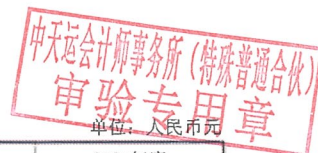 中天运会计师事务所（特殊普通合伙）
审验专用章
单位：人民币元